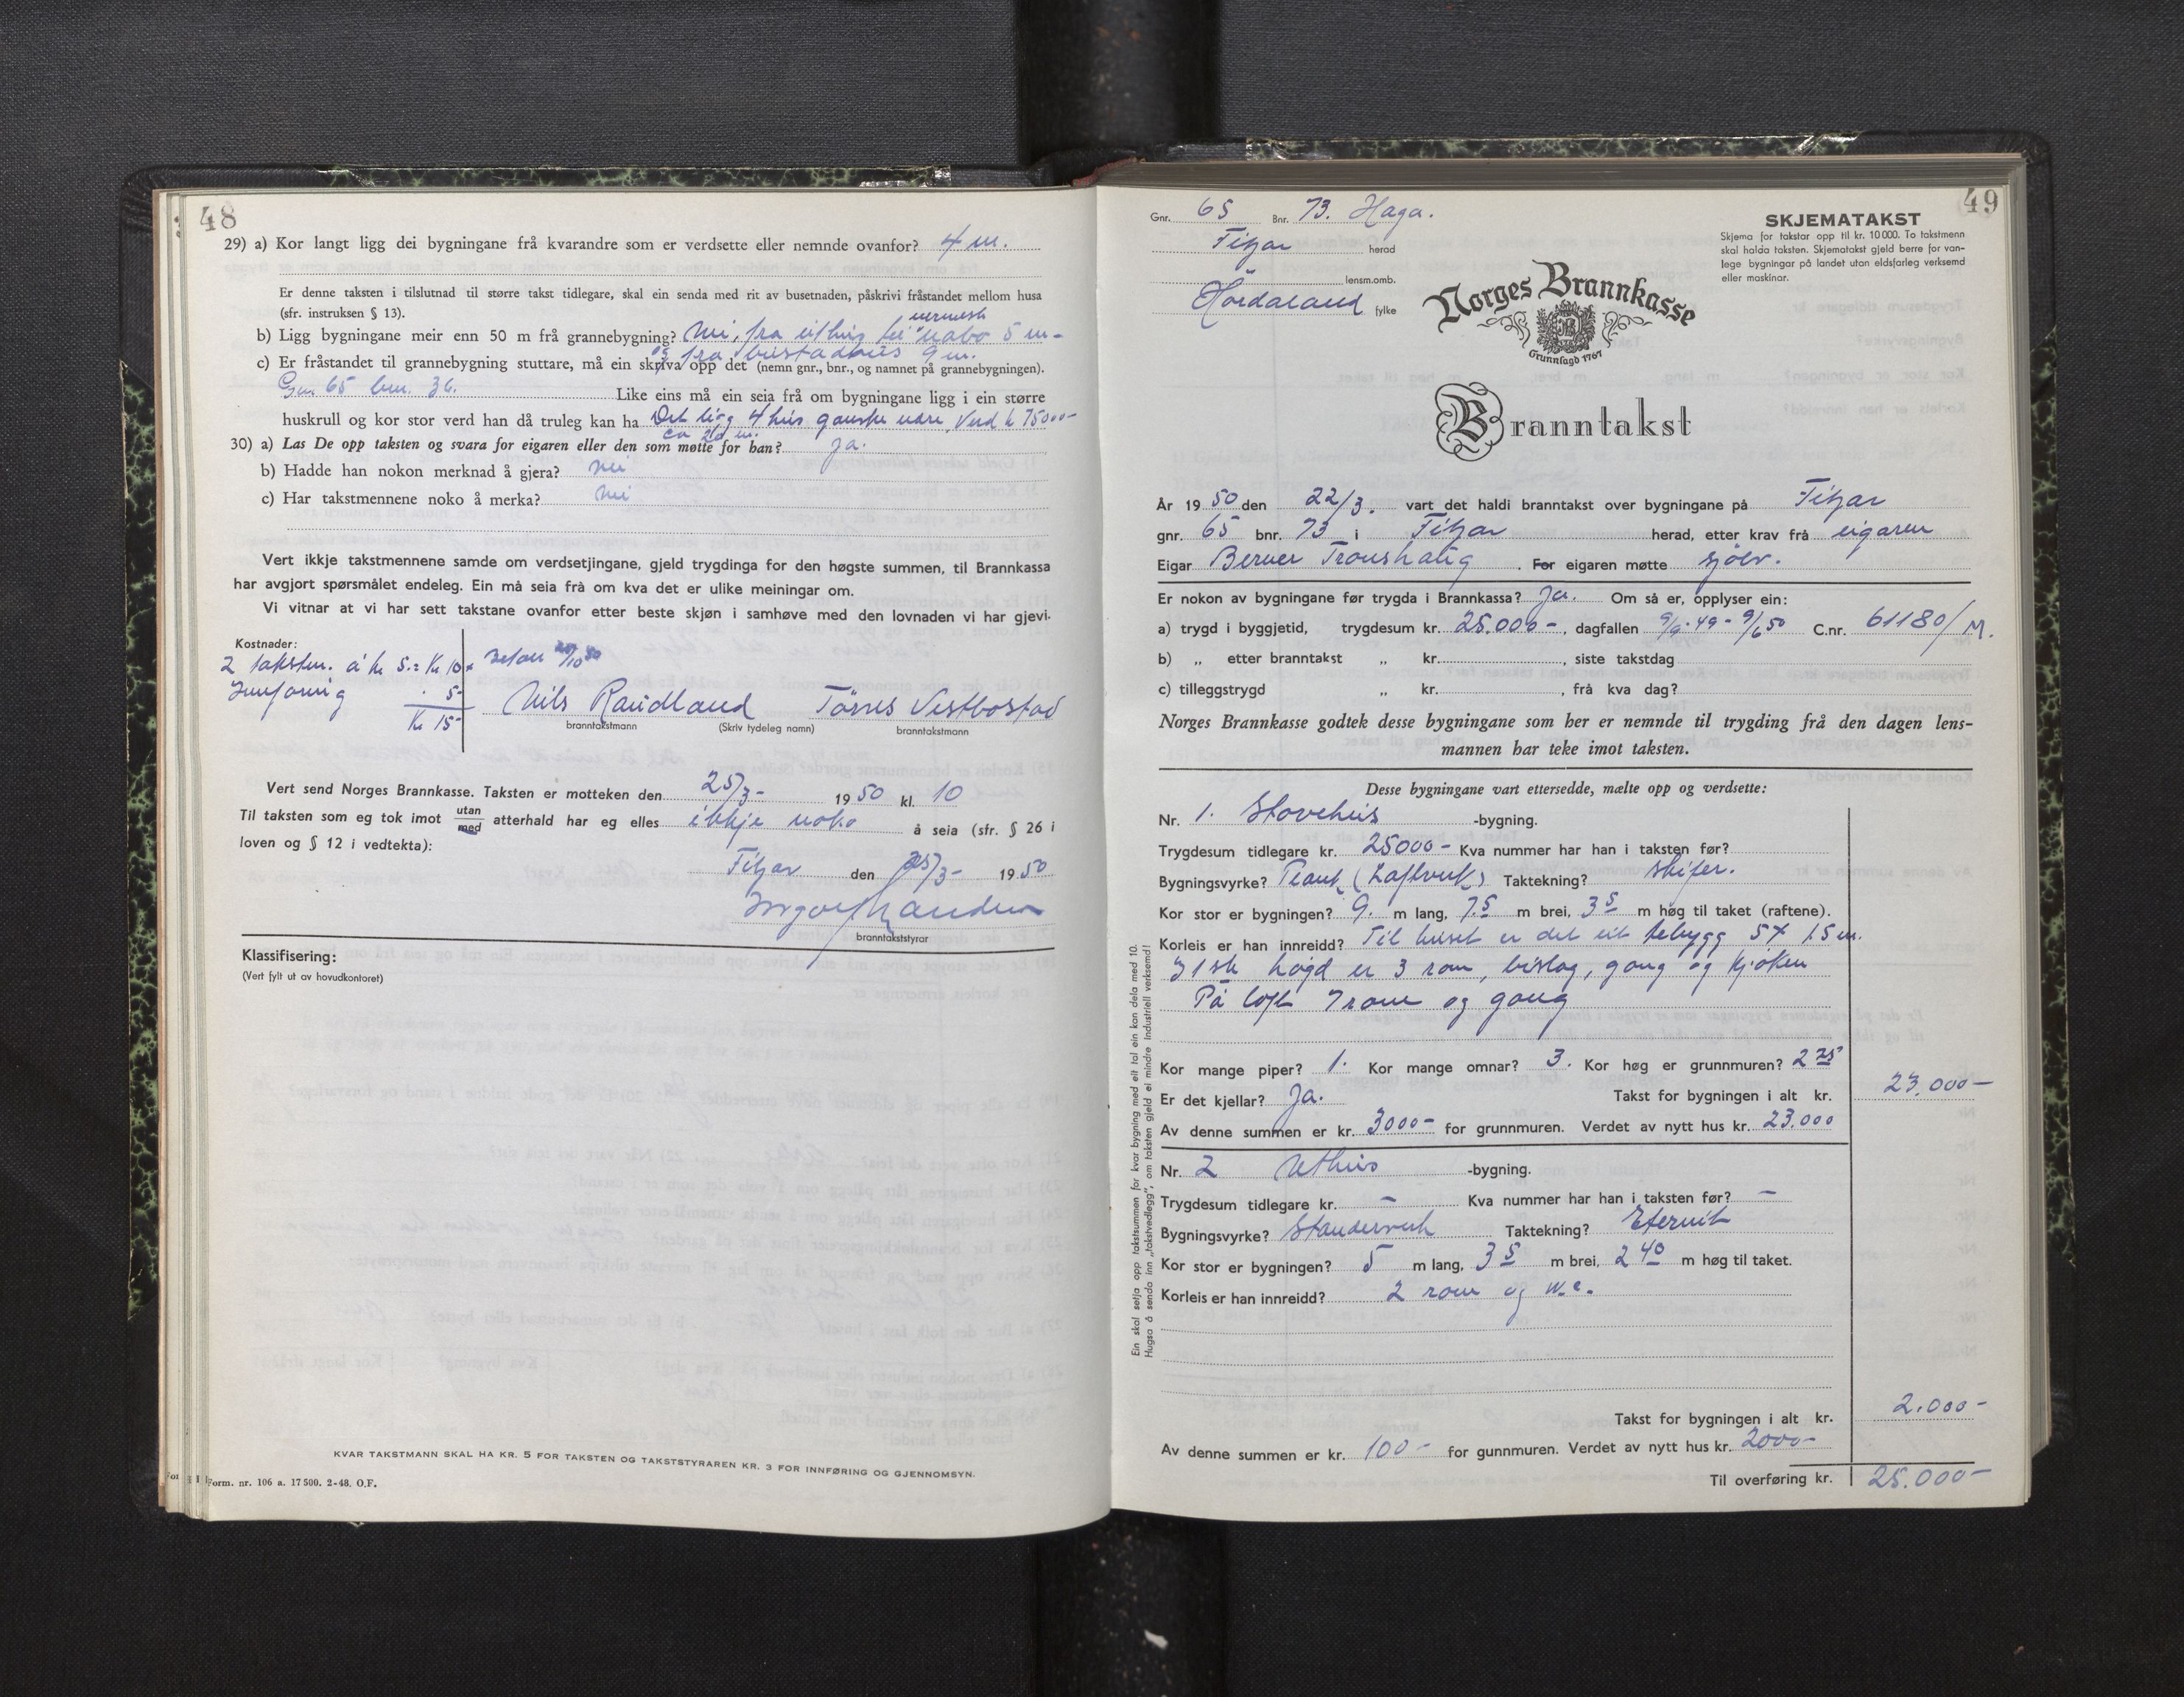 48
29) a) Kor langt ligg dei bygningane frå kvarandre som er verdsette eller nemnde ovanfor? 4 m.
Er denne taksten i tilslutnad til større takst tidlegare, skal ein senda med rit av busetnaden, påskrivi fråstandet mellom husa
(sfr. instruksen § 13).
b) Ligg bygningane meir enn 50 m frå grannebygning? Nei, fra uthus til nermeste nabo 5 m-
og fra bustadhus 9 m.
c) Er fråstandet til grannebygning stuttare, må ein skriva opp det (nemn gnr., bnr., og namnet på grannebygningen).
Gnr. 65 bnr. 36. Like eins må ein seia frå om bygningane ligg i ein større
huskrull og kor stor verd han då truleg kan ha Det ligg 4 hus ganske nære, Verd k 75000-
ca 20 m.
30) a) Las De opp taksten og svara for eigaren eller den som møtte for han? Ja.
b) Hadde han nokon merknad å gjera? Nei
c) Har takstmennene noko å merka? Nei
Vert ikkje takstmennene samde om verdsetjingane, gjeld trygdinga for den høgste summen, til Brannkassa
har avgjort spørsmålet endeleg. Ein må seia frå om kva det er ulike meiningar om.
Vi vitnar at vi har sett takstane ovanfor etter beste skjøn i samhøve med den lovnaden vi har gjevi.
Kostnader:
2 takstm. á kr 5.= Kr 10
Innføring - 5-
Kr 15-
Nils Raudland Tørres Vestbostad
branntakstmann (Skriv tydeleg namn) branntakstmann
Vert send Norges Brannkasse. Taksten er motteken den 25/3- 1950 kl. 10
Til taksten som eg tok imot utan/med atterhald har eg elles ikkje noko å seia (sfr. § 26 i
loven og § 12 i vedtekta):
Fitjar den 25/3- 1950
branntakststyrar
Klassifisering:
(Vert fylt ut av hovudkontoret)
KVAR TAKSTMANN SKAL HA KR. 5 FOR TAKSTEN OG TAKSTSTYRAREN KR. 3 FOR INNFØRING OG GJENNOMSYN.
Form. nr. 106 a. 17 500. 2-48. O.F.
49
Gnr. 65 Bnr. 73. Haga.
Fitjar herad
lensm.omb.
Hordaland fylke
SKJEMATAKST
Skjema for takstar opp til kr. 10 000. To takstmenn
skal halda taksten. Skjematakst gjeld berre for van-
lege bygningar på landet utan eldsfarleg verksemd
eller maskinar.
Norges Brannkasse
Grunnlagd 1767
Branntakst
År 1950 den 22/3. vart det haldi branntakst over bygningane på Fitjar
gnr. 65 bnr. 73 i Fitjar herad, etter krav frå eigaren
Eigar Berner Tronshaug. For eigaren møtte sjølv.
Er nokon av bygningane før trygda i Brannkassa? Ja. Om så er, opplyser ein:
a) trygd i byggjetid, trygdesum kr. 25.000-, dagfallen 9/9-49 - 9/6 50 C.nr. 61180/M.
b) „ etter branntakst „ kr. , siste takstdag
c) tilleggstrygd „ kr. , frå kva dag?
Norges Brannkasse godtek desse bygningane som her er nemnde til trygding frå den dagen lens-
mannen har teke imot taksten.
Desse bygningane vart ettersedde, mælte opp og verdsette:
Nr. 1. Stovehus -bygning.
Trygdesum tidlegare kr. 25000- Kva nummer har han i taksten før?
Bygningsvyrke? Plank (Laftverk) Taktekning? skifer.
Kor stor er bygningen? 9. m lang, 7.5 m brei, 3 5 m høg til taket (raftene).
Korleis er han innreidd? Til huset er det eit tebygg 5 x 1.5 m.
I 1ste høgd er 3 rom, bislag, gang og kjøken
På loft 7 rom og gang
Kor mange piper? 1. Kor mange omnar? 3. Kor høg er grunnmuren? 2 25
Er det kjellar? Ja. Takst for bygningen i alt kr. 23.000-
Av denne summen er kr. 3000- for grunnmuren. Verdet av nytt hus kr. 23.000
Nr. 2 Uthus -bygning.
Trygdesum tidlegare kr. - Kva nummer har han i taksten før? -
Bygningsvyrke? Standerverk Taktekning? Eternit
Kor stor er bygningen? 5 m lang, 3 5 m brei, 2 40 m høg til taket.
Korleis er han innreidd? 2 rom og w.c.
Takst for bygningen i alt kr. 2.000-
Av denne summen er kr. 100- for gunnmuren. Verdet av nytt hus kr. 2000-
Til overføring kr. 25.000-
Ein skal setja opp takstsummen for kvar bygning med eit tal ein kan dela med 10.
Hugsa å senda inn „takstvedlegg", om taksten gjeld ei mindre industriell verksemd!